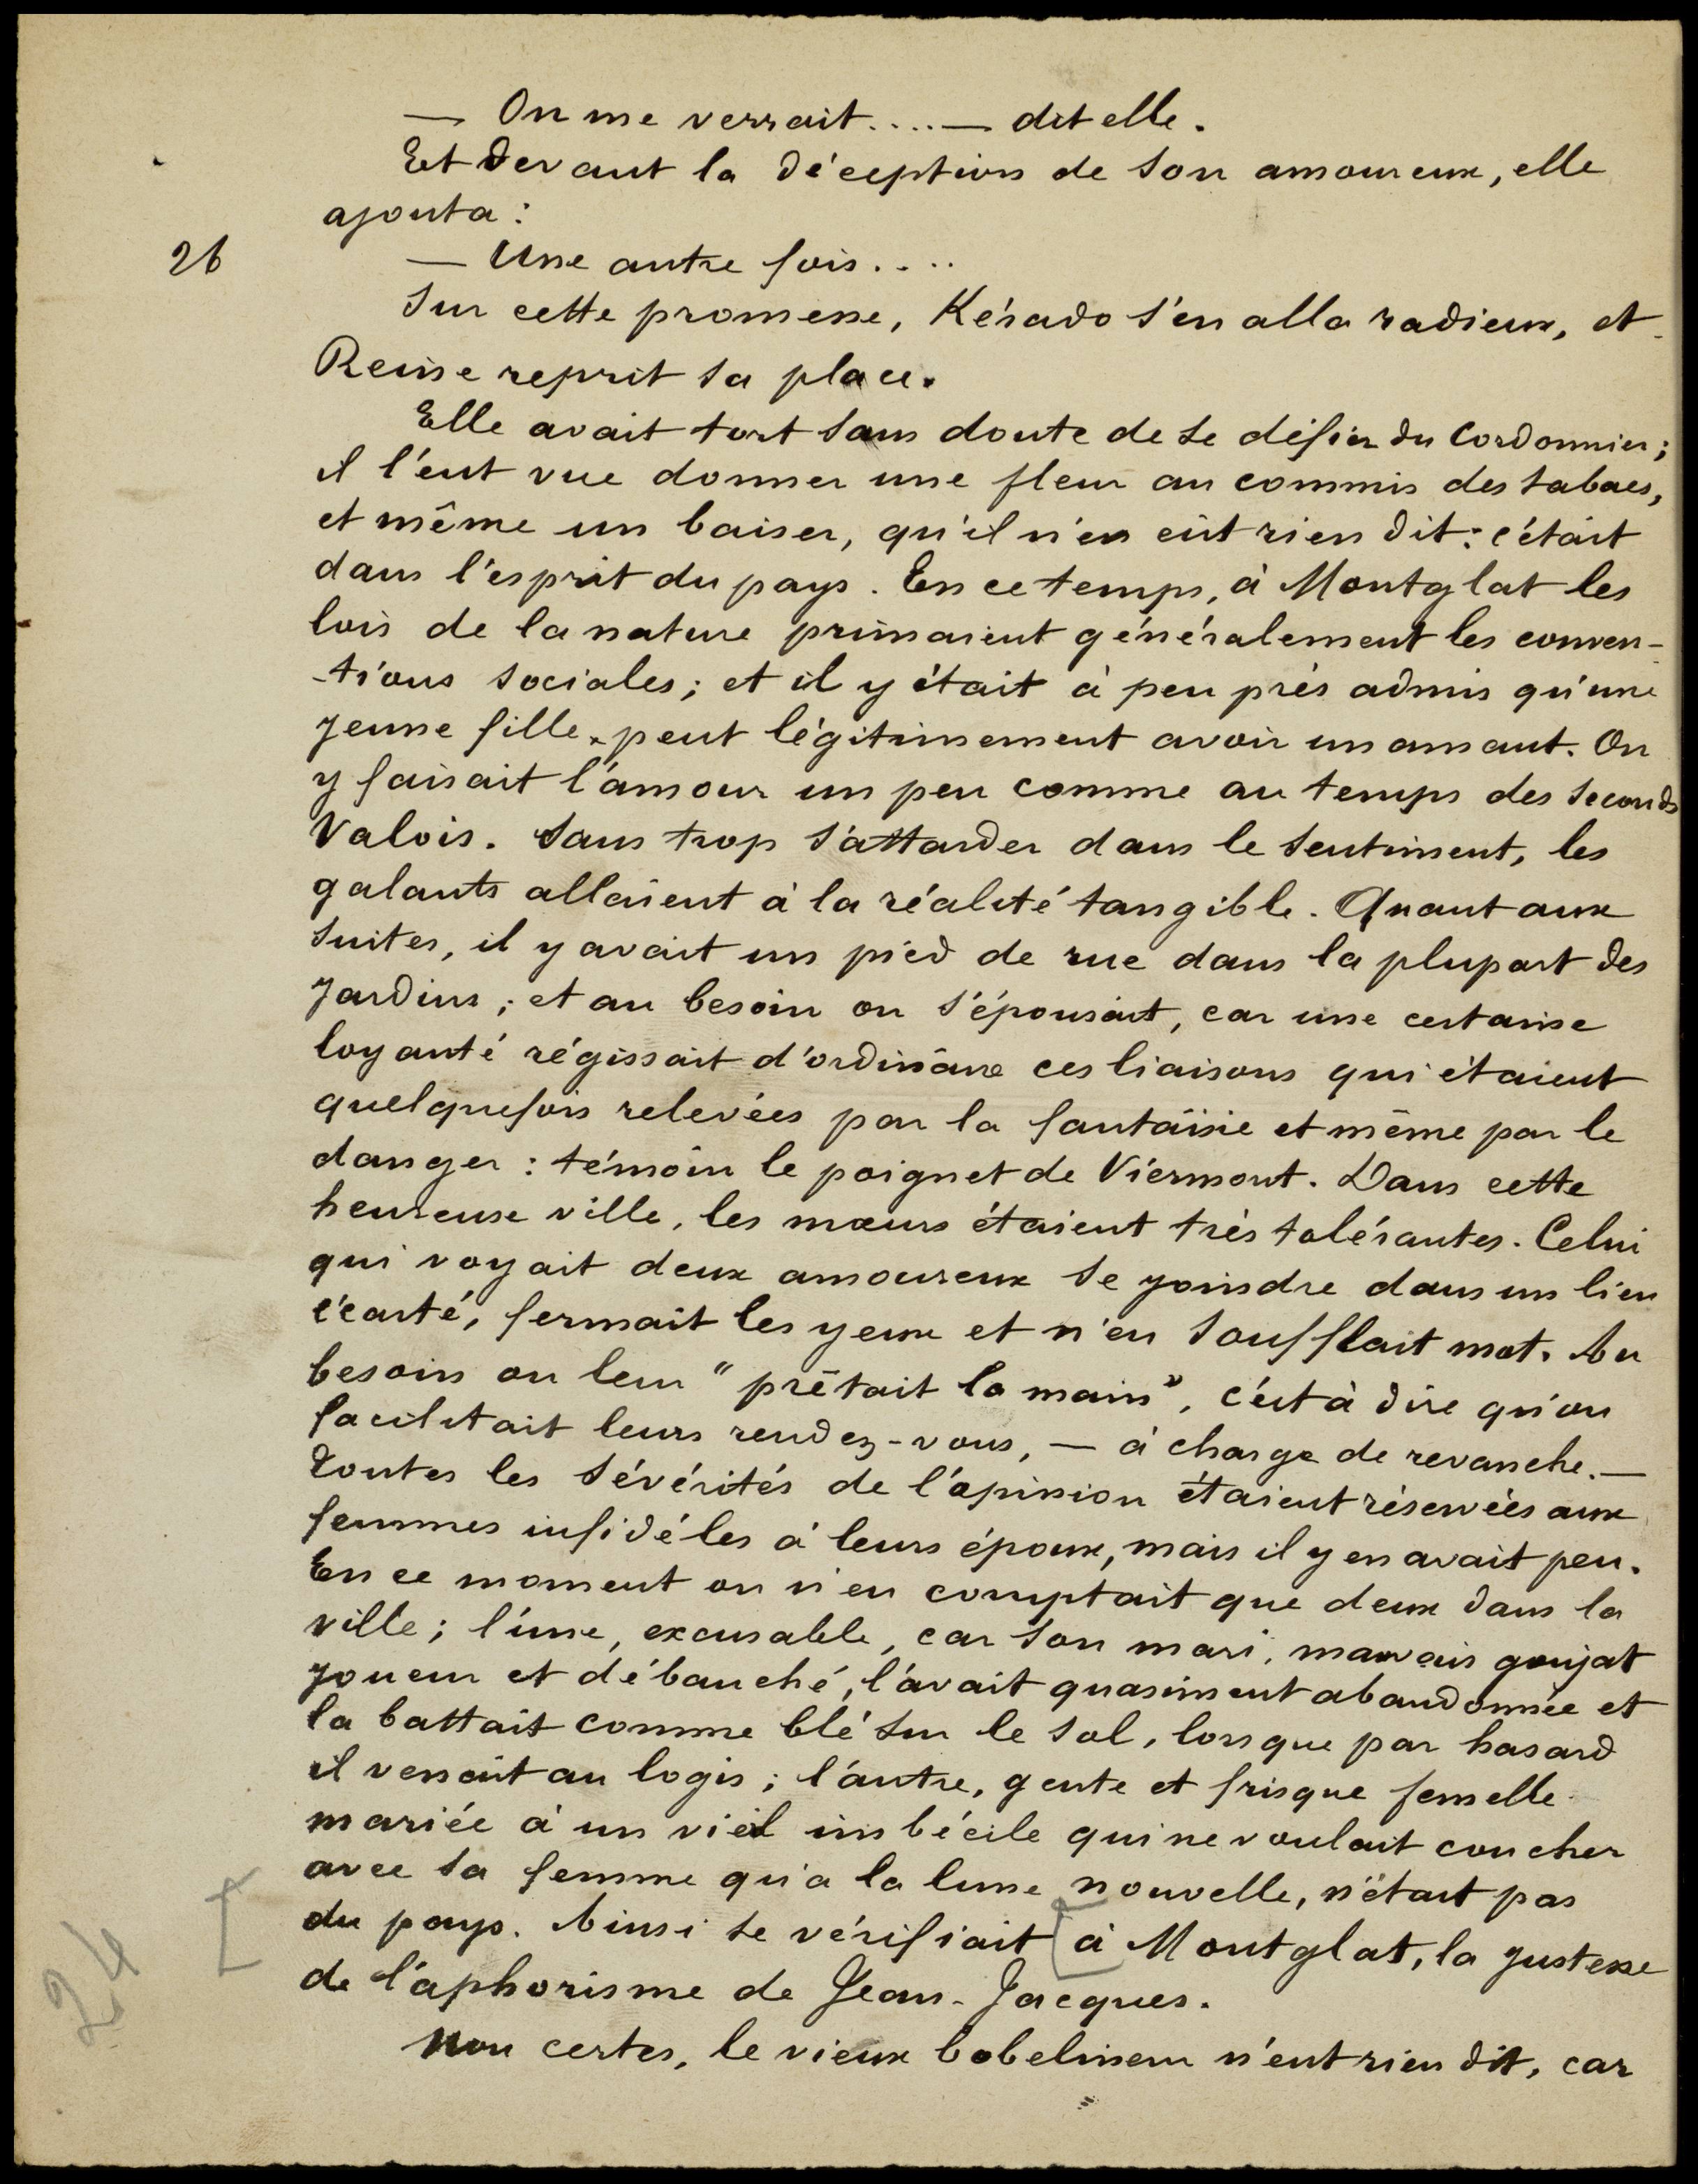 — On me verrait....— dit elle.
Et devant la déception de son amoureux, elle
ajouta:
26
— Une autre fois....
Sur cette promesse, Kérado s'en alla radieux, et
Reine reprit sa place.
Elle avait tort sans doute de se défier du cordonnier;
il l'eut vue donner une fleur au commis des tabacs,
et même un baiser, qu'il n'en eût rien dit: c'était
dans l'esprit du pays. En ce temps, à Montglat les
lois de la nature primaient généralement les conven-
-tions sociales; et il y était à peu près admis qu'une
jeune fille peut légitimement avoir un amant. On
y faisait l'amour un peu comme au temps des seconds
Valois. Sans trop s'attarder dans le sentiment, les
galants allaient à la réalité tangible. Quant aux
suites, il y avait un pied de rue dans la plupart des
jardins; et au besoin on s'épousait, car une certaine
loyauté régissait d'ordinaire ces liaisons qui étaient
quelquefois relevées par la fantaisie et même par le
danger: témoin le poignet de Viermont. Dans cette
heureuse ville, les mœurs étaient très tolérantes. Celui
qui voyait deux amoureux se joindre dans un lieu
écarté, fermait les yeux et n'en soufflait mot. Au
besoin on leur "prêtait la main", c'est à dire qu'on
facilitait leurs rendez-vous, — à charge de revanche.—
Toutes les sévérités de l'opinion étaient réservées aux
femmes infidéles à leurs époux, mais il y en avait peu.
En ce moment on n'en comptait que deux dans la
ville; l'une, excusable, car son mari, mauvais goujat
joueur et débauché, l'avait quasiment abandonnée et
la battait comme blé sur le sol, lorsque par hasard
il venait au logis; l'autre, gente et frisque femelle
mariée à un vieil imbécile qui ne voulait coucher
avec sa femme qu'a la lune nouvelle, n'était pas
[
du pays. Ainsi se vérifiait [à Montglat, la justesse
24
de l'aphorisme de Jean-Jacques.
Non certes, le vieux bobelineur n'eut rien dit, car